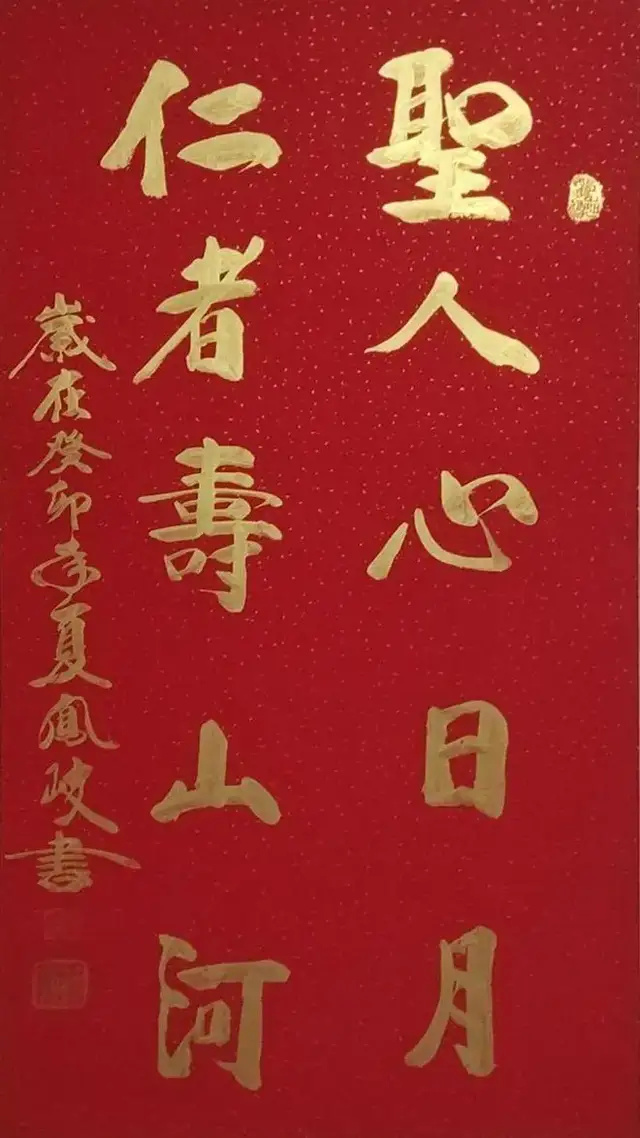 聖人心日月
仁者壽山河
歲在癸卯年夏鳳岐書